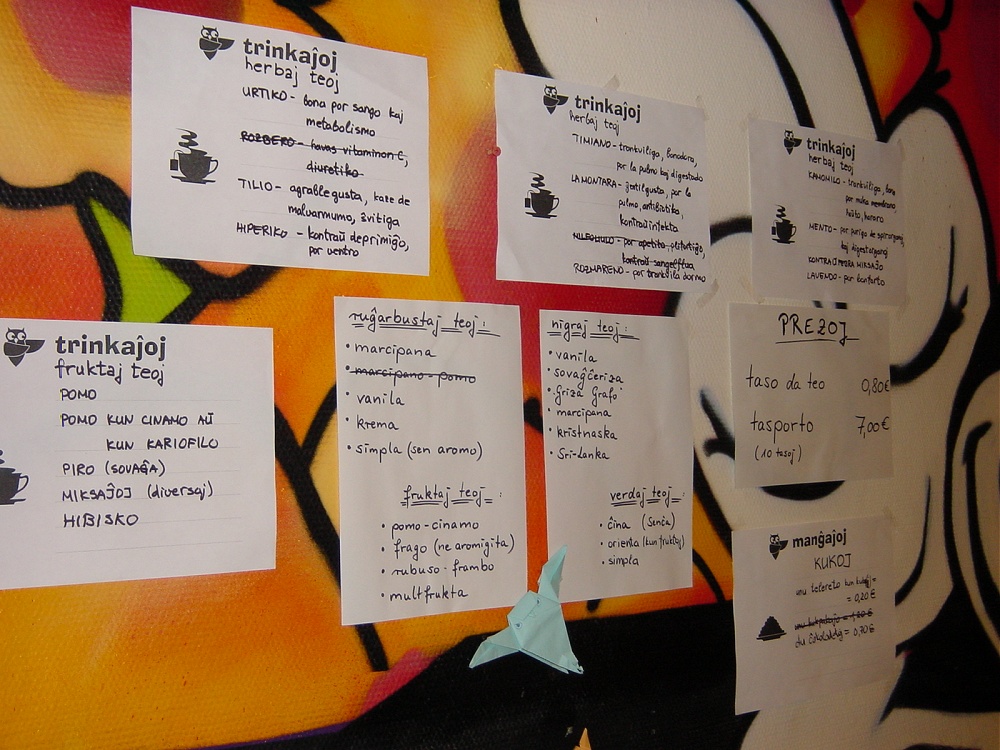 trinkaĵoj
herbaj teoj
URTIKO - bona por sango kaj
metabolismo
ROZBERO - havas vitaminon C,
diuretiko
TILIO - agrable gusta, kaze de
malvarmumo, ŝvitiga
HIPERIKO - kontraŭ deprimiĝo,
por ventro
trinkaĵoj
herbaj teoj
TIMIANO - trankviliga, bonodora,
por la pulmo kaj digestado
LAMONTARA - ĝentilgusta, por la
pulmo, antibiotika,
kontraŭinfekta
- por apetito, plifortiĝo,
kontraŭ sangelfluo
ROZMARENO - por trankvila dormo
trinkaĵoj
herbaj teoj
KAMOMILO - trankviliga, bona
por muka membrano,
haŭto, hararo
MENTO - por puriga de spirorganoj
kaj digestorganoj
MIKSAĴO
LAVENDO - por komforto
trinkaĵoj
fruktaj teoj
POMO
POMO KUN CINAMO AŬ
KUN KARIOFILO
PIRO (SOVAĜA)
MIKSAĴOJ (diversaj)
HIBISKO
ruĝarbustaj teoj:
• marcipana
• marcipano - pomo
• vanila
• krema
• simpla (sen aromo)
fruktaj teoj:
• pomo-cinamo
• frago (ne aromigita)
• rubuso-frambo
• multfrukta
nigraj teoj:
• vanila
• sovaĝĉeriza
• Griza Grafo
• marcipana
• kristnaska
• Sri-Lanka
verdaj teoj:
• ĉina (Senĉa)
• orienta (kun fruktoj)
• simpla
PREZOJ
taso da teo 0,80€
tasporto 7,00€
(10 tasoj)
manĝaĵoj
KUKOJ
unu telereto kun kukoj =
= 0,20 €
unu
du ĉokoladaj = 0,70 €